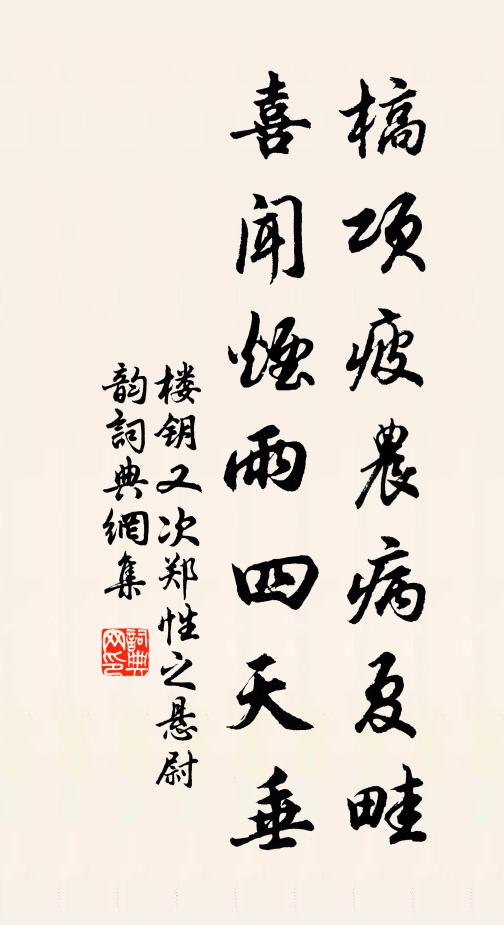 槁项疲農病夏畦
喜闻煙雨四天垂
楼钥又次郑惟之悬尉
韵詞典網集
詞典网印